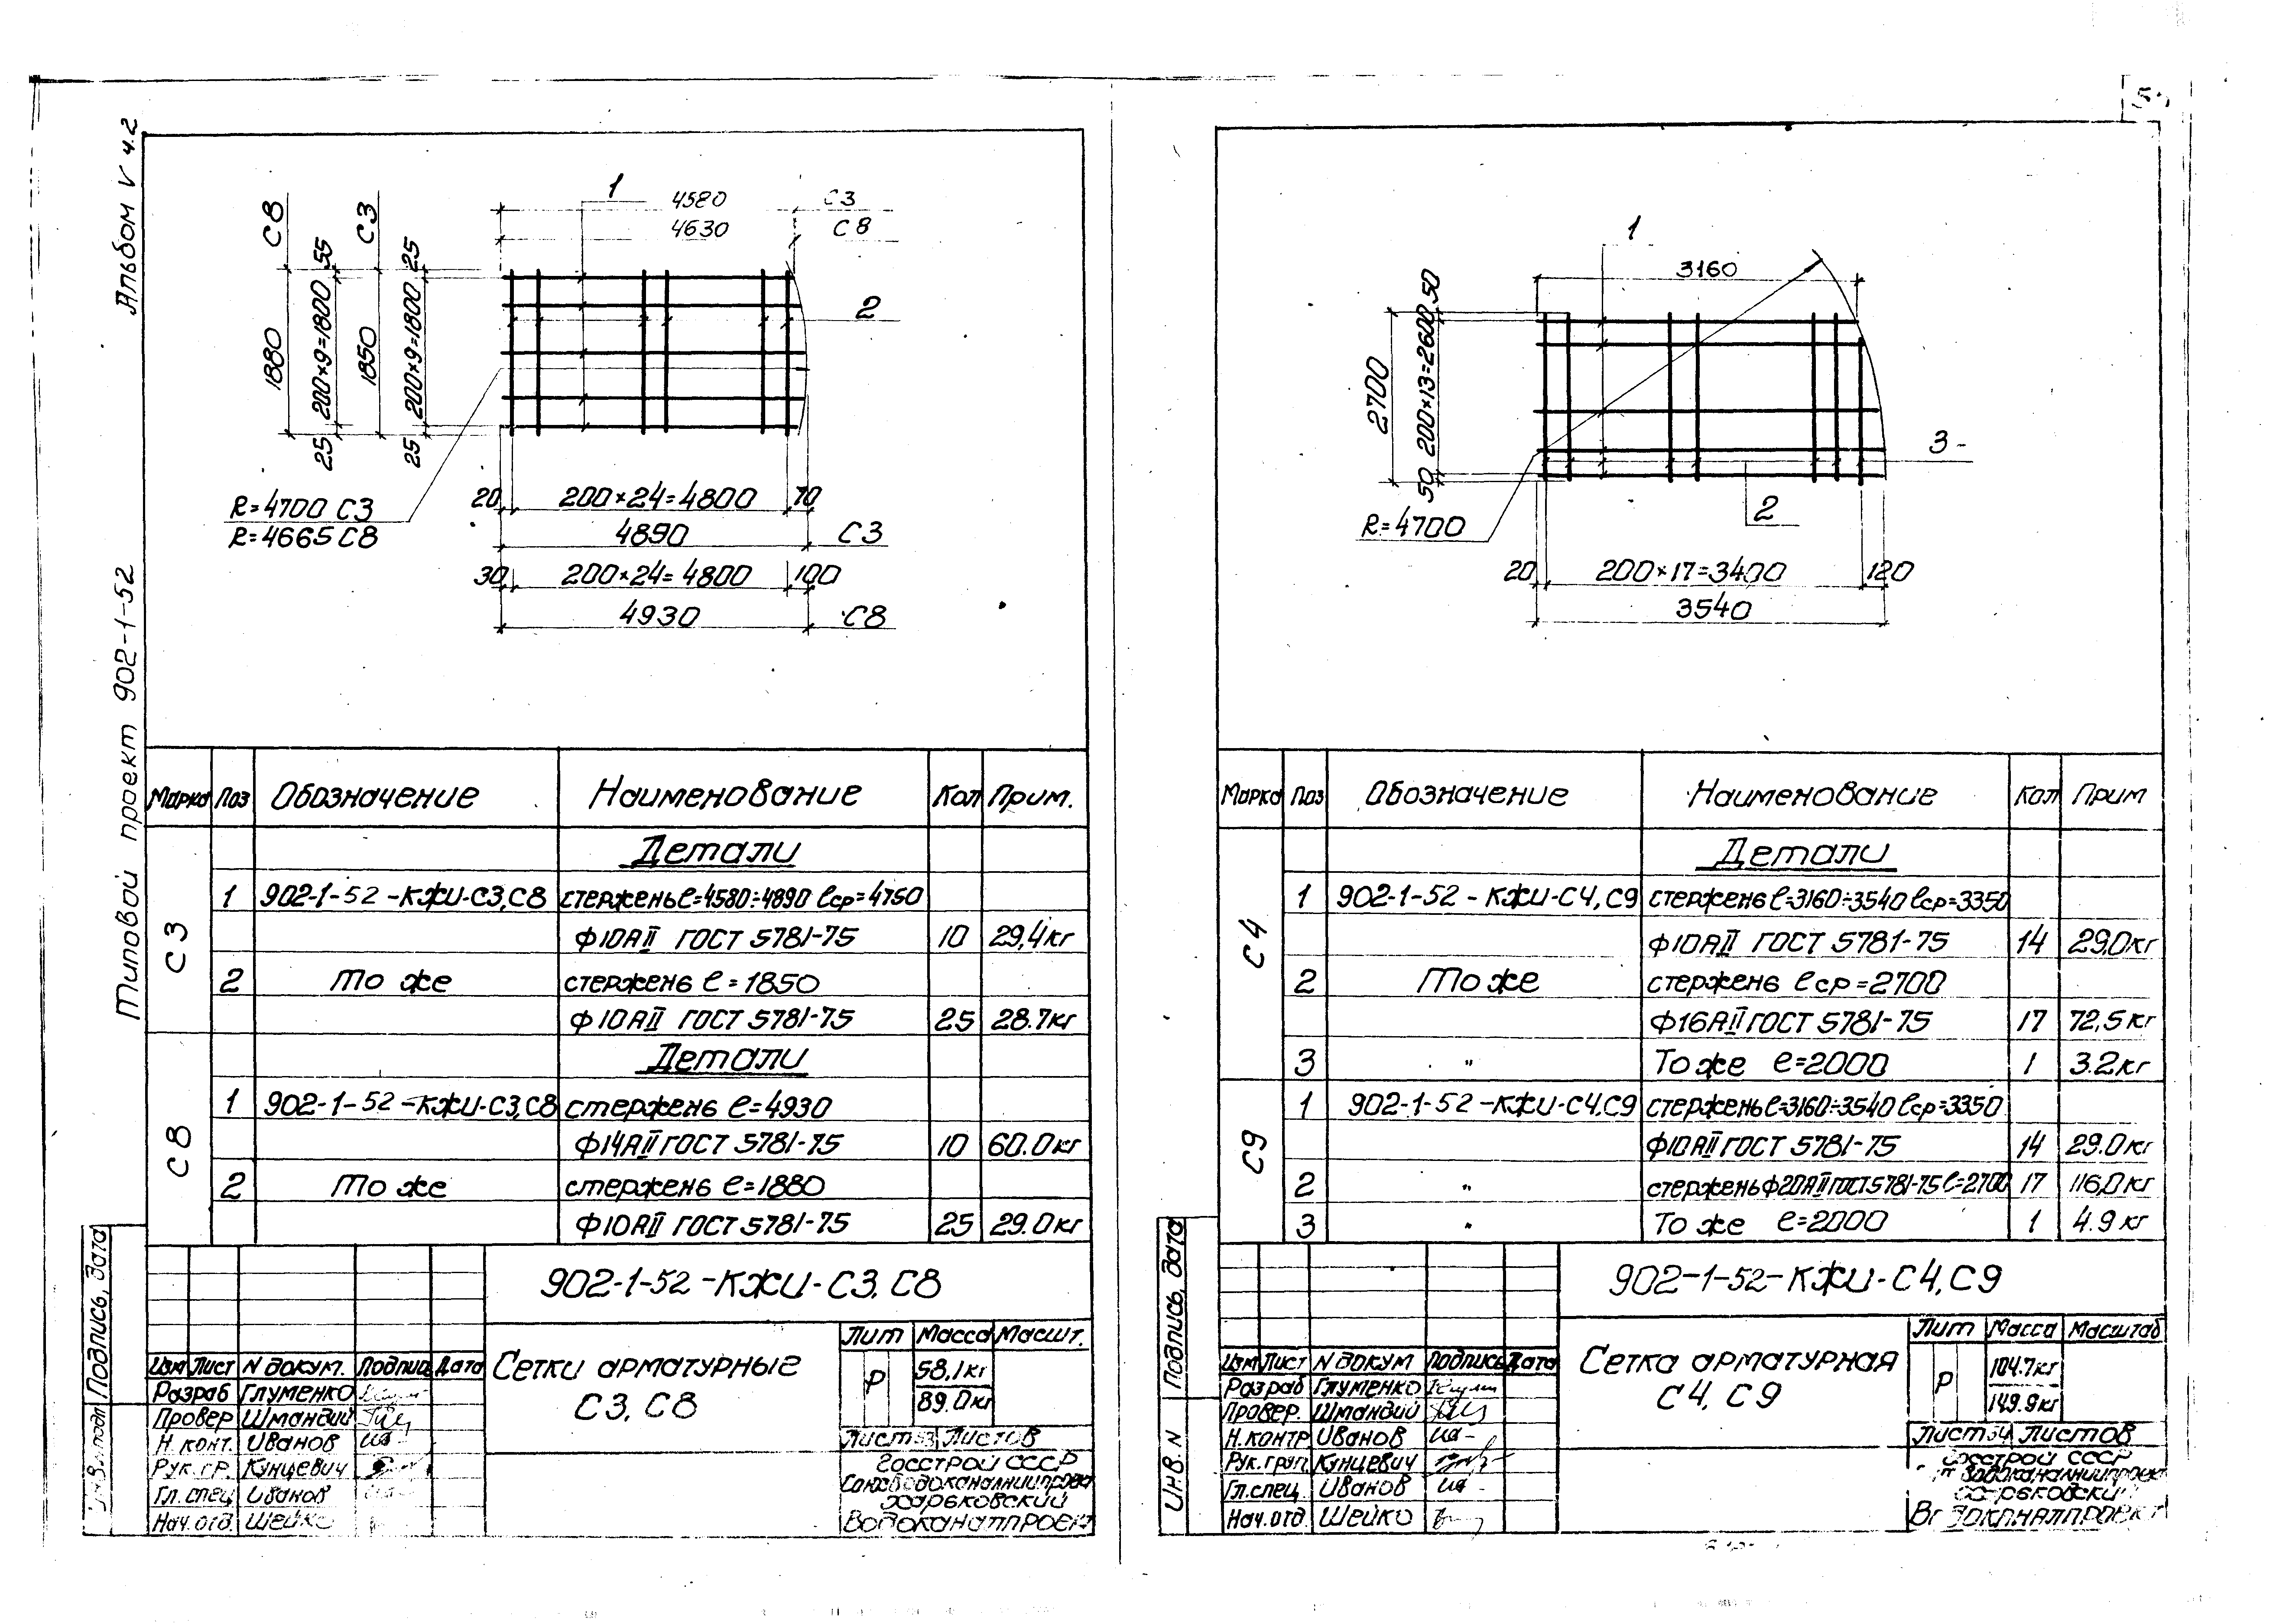 Альбом V ч.2
Типовой проект 902-1-52
С8
С3
1
4580 С3
4630 С8
55
25
200×9=1800
200×9=1800
1880
1850
25
25
2
R=4700 С3
R=4665 С8
20 200×24=4800 70
4890 С3
30 200×24=4800 100
4930 С8
Марка Поз Обозначение Наименование Кол Прим.
Детали
С3
1 902-1-52-КЖИ-С3,С8 стержень ℓ=4580÷4890 ℓср=4750
Ф10АII ГОСТ 5781-75 10 29,4кг
2 То же стержень ℓ=1850
Ф10АII ГОСТ 5781-75 25 28.7кг
Детали
С8
1 902-1-52-КЖИ-С3,С8 стержень ℓ=4930
Ф14АII ГОСТ 5781-75 10 60.0кг
2 То же стержень ℓ=1880
Ф10АII ГОСТ 5781-75 25 29.0кг
902-1-52-КЖИ-С3,С8
Сетки арматурные
С3, С8
Лит Масса Масшт.
Р 58,1кг
89.0кг
Лист 33 Листов
Госстрой СССР
Союзводоканалниипроект
Харьковский
Водоканалпроект
Изм Лист N докум. Подпись Дата
Разраб Глуменко
Провер Шмандий
Н.конт. Иванов
Рук.гр. Кунцевич
Гл.спец Иванов
Нач.отд. Шейко
Подпись, дата
Инв.N подл
1
3160
50
200×13=2600
2700
50
3
2
R=4700
20 200×17=3400 120
3540
Марка Поз Обозначение Наименование Кол Прим
Детали
С4
1 902-1-52-КЖИ-С4,С9 стержень ℓ=3160÷3540 ℓср=3350
Ф10АII ГОСТ 5781-75 14 29,0кг
2 То же стержень ℓср=2700
Ф16АII ГОСТ 5781-75 17 72,5кг
3 " То же ℓ=2000 1 3.2кг
С9
1 902-1-52-КЖИ-С4,С9 стержень ℓ=3160÷3540 ℓср=3350
Ф10АII ГОСТ 5781-75 14 29.0кг
2 " стержень Ф20АII ГОСТ 5781-75 ℓ=2700 17 116,0кг
3 " То же ℓ=2000 1 4.9кг
902-1-52-КЖИ-С4,С9
Сетка арматурная
С4, С9
Лит Масса Масштаб
Р 104.7кг
149.9кг
Лист 34 Листов
Госстрой СССР
Водоканалниипроект
Харьковский
Водоканалпроект
Изм Лист N докум Подпись Дата
Разраб Глуменко
Провер. Шмандий
Н.контр Иванов
Рук.груп Кунцевич
Гл.спец. Иванов
Нач.отд. Шейко
Подпись, дата
Инв.N